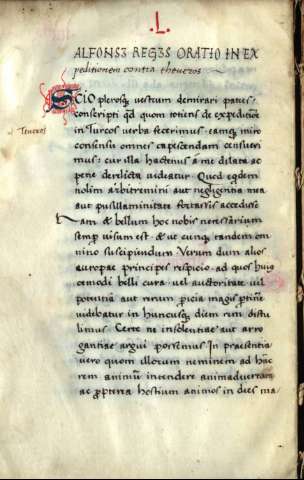 .L.
ALFONSI REGIS ORATIO IN EX
peditionem contra theucros
Teucros
SCIO plerosque vestrum demirari patres
conscripti quod quom totiens de expeditione
in Turcos verba fecerimus: eamque miro
consensu omnes capescendam censueri
mus: cur illa hactenus a me dilata ac
pene derelicta videatur. Quod quidem
nolim arbitremini aut negligentia mea
aut pusillaminitate fortassis accedisse
Nam & bellum hoc nobis necessarium
semper visum est. & ut cunque tandem om
nino suscipiendum Verum dum alios
europae principes respicio. ad quos huius
cemodi belli cura. vel auctoritate vel
potentia aut rerum pericia magis pertinere
videbatur in huncusque diem rem distu
limus. Certe ne insolentiae aut arro
gantiae argui possemus In praesentia
vero quom illorum neminem ad hanc
rem animum intendere animadvertam
ac propterea hostium animos in dies ma